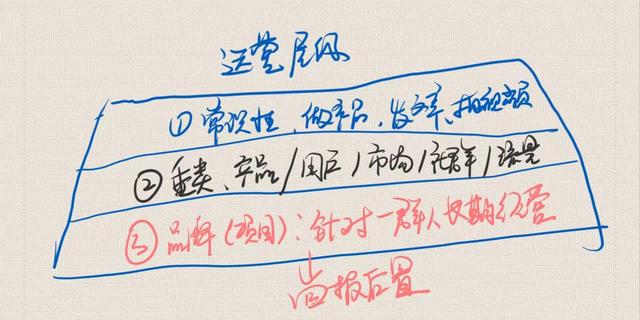 运营层级
① 常识性、做产品、发文章、拍视频
② 垂类、产品/用户/市场/社群/场景
③ 品牌(项目):针对一群人长期经营
↓
回报后置